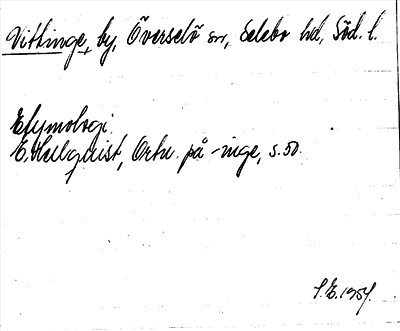 Vittinge, by, Överselö sn, Selebo hd, Söd. l.
Etymologi.
E. Hellquist, Ortn. på -inge, s. 50.
S.E. 1954.